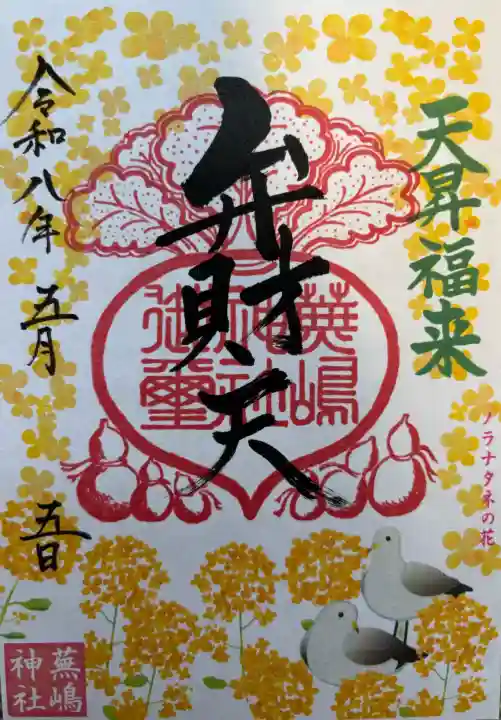 天昇福来
ノラナタネの花
弁財天
蕪嶋
神社
御璽
令和八年 五月 五日
蕪嶋
神社